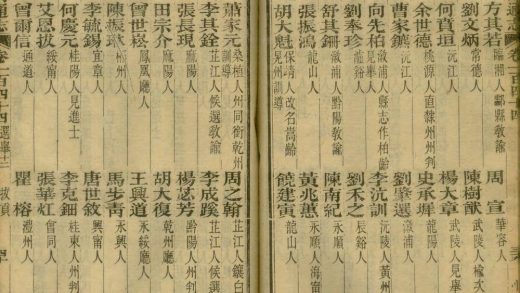 通志
方其若 臨湘人 酃縣教諭 周宣 華容人
劉文炳 常德人 陳樹猷 武陵人
何賁垣 沅江人 楊大章 武陵人 見舉
余世德 桃源人 直隸州州判 史承墀 龍陽人
曹家鑣 沅江人 劉肇選 漵浦人
向先柏 漵浦人 縣志作柏齡 李沆訓 沅陵人 黃州
劉奉珍 劉禾之 辰谿人
舒其錋 漵浦人 黔陽教諭 陳南紀 永順人
張振鴻 龍山人 黃兆蕙 永順人 海甯
胡大魁 保靖人 改名 饒建寅 龍山人
蕭家元 桑植人 州同銜 乾州訓導 周之翰 芷江人 鑲白
李其銓 芷江人 候選教諭 李成蹊 芷江人 候選
張長現 麻陽人 楊苾芳 黔陽人 州判
田宗介 麻陽人 胡大復 乾州廳人
曾世崧 鳳凰廳人 王興道 永綏廳人
陳振 郴州人 馬步青 永興人
李毓錫 宜章人 唐世敘 興甯人
何慶元 桂陽人 見進士 李克鈿 桂東人 州判
艾恩拔 綏甯人 張華 會同人
曾爾信 通道人 瞿榕 澧州人
通志 卷一百四十四 選舉十二 拔貢